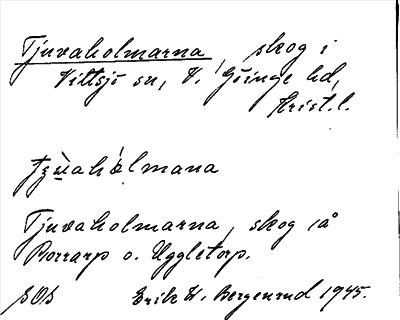 Tjuvaholmarna, skog i
Vittsjö sn, V. Göinge hd,
Krist.l.
Tjuvaholmarna, skog iå
Borrarp o. Uggletorp.
SOS Erik W. Bergenrud 1945.